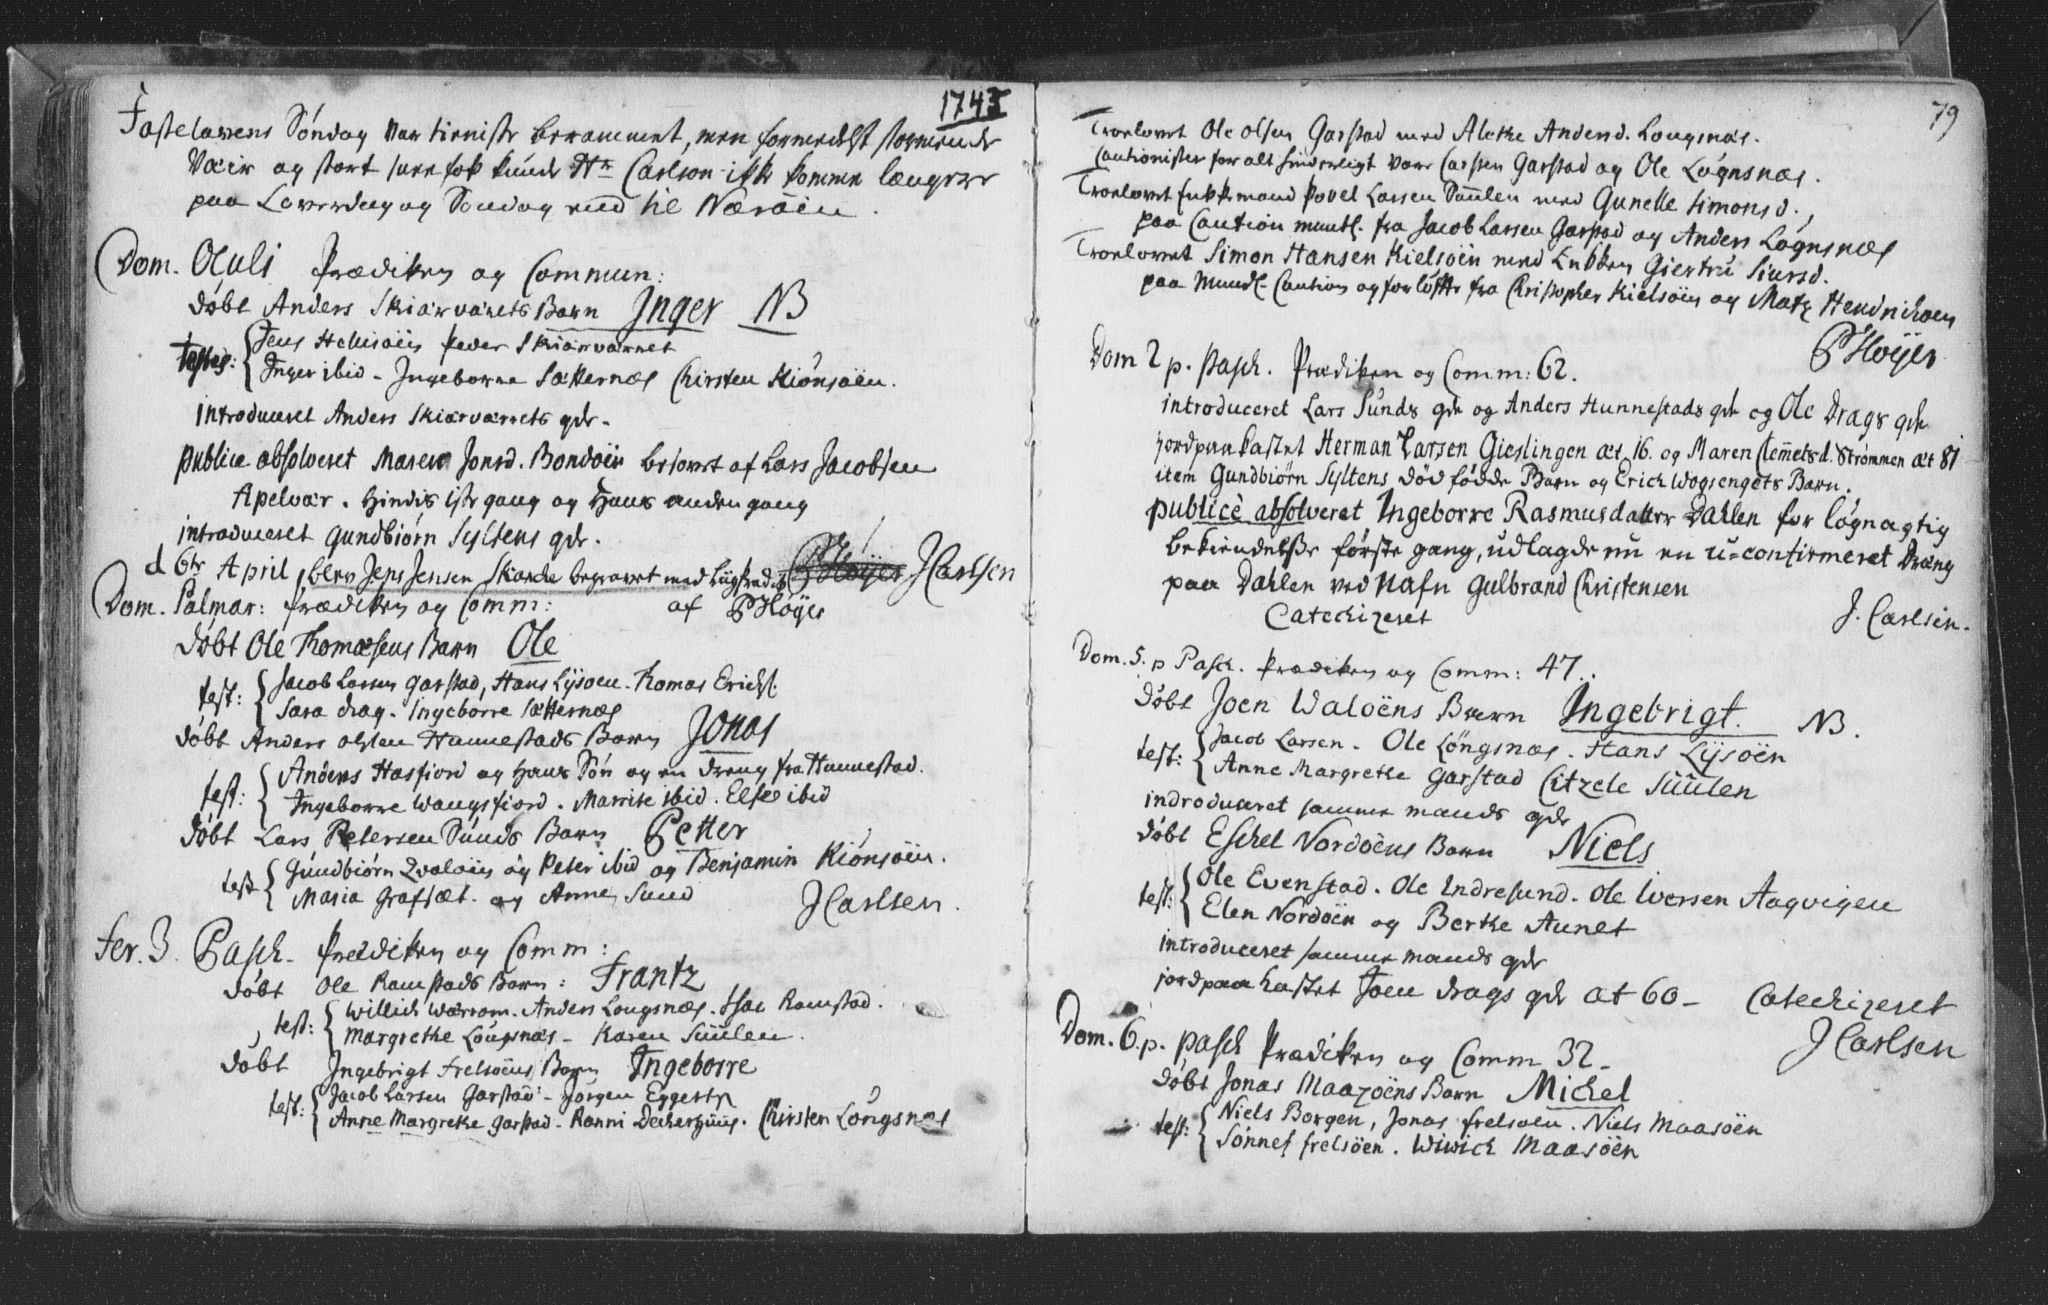 1743
Fastelavens Söndag var tieniste berammet, men formedelst stormende
Væir og stort snee fok kunde Hr Carlson ikke komme længere
paa Löverdag og Söndag end til Næröen.
Dom. Oculi Prædiken og Commun:
döbt Anders Skiærværets Barn Inger NB
Testes: Jens Helmsöen Peder Skiærværret
Inger ibid - Ingeborre Sætternæs Chirsten Kiönsöen.
introduceret Anders Skiærværrets qde.
publice absolveret Maren Jonsd. Bondöen besovet af Lars Jacobsen
Apelvær. Hindis iste gang og Hans anden gang
introduceret Gundbiörn Syltens qde.
d 6te April, blev Jens Jensen Skarche begravet med Liigprædik JCarlsen
af PHöyer
Dom. Palmar: Prædiken og Comm:
döbt Ole Thomæsens Barn Ole
test: Jacob Larsen Garstad, Hans Lÿsöen. Thomas Erichs.
Sara drag. Ingeborre Sætternæs
döbt Anders olsen Hunnestads Barn Jonas
test: Anders Hasfiord og Hans Sön og en dreng fra Hunnestad.
Ingeborre Wangsfiord. Marrite ibid. Else ibid
döbt Lars Petersen Sunds Barn Petter
test Gundbiörn Qvalöen og Peter ibid og Benjamin Kiönsöen.
Maria Grafsæt. og Anne Sund JCarlsen.
Fer. 3. Pasch. Prædiken og Comm:
döbt Ole Ramstads Barn: Frantz
test: Willich Wærrom. Anders Longsnæs. Isac Ramstad.
Margrethe Longsnæs - Karen Suulen.
döbt Ingebrigt Frelsöens Barn Ingeborre
test: Jacob Larsen Garstad - Jörgen Eggesty
Anne Margrethe Garstad - Ranni Deckerhuus. Chirsten Longsnæs
79
Troelovet Ole olsen Garstad med Alethe Andersd. Longsnæs.
Cautionister for alt hinderligt vare Carsten Garstad og Ole Lögnsnæs.
Troelovet Enkkemand Povel Larsen Suulen med Gunelle Simonsd.,
paa Caution mundtl. fra Jacob Larsen Garstad og Anders Lögnsnæs
Troelovet Simon Hansen Kielsöen med Enkken Giertru Siursd.
paa Mundl. Caution og forlöffte fra Christopher Kielsöen og Matz Hendrichsen
PHöyer
Dom 2 p. Pasch. Prædiken og Comm: 62.
introduceret Lars Sunds qde og Anders Hunnestads qde og Ole Drags qde
jordpaakastet Herman Larsen Gieslingen æt 16. og Maren Clemetsd. Strömmen æt 81
item Gundbiörn Syltens död födde Barn og Erich Wogsengets Barn.
publicè absolveret Ingeborre Rasmusdatter Dahlen for lögnagtig
bekiendelsse förste gang, udlagde nu en u-confirmeret Dræng
paa Dahlen ved Nafn Gulbrand Christensen
Catechizeret J. Carlsen.
Dom. 5. p Pasch. Prædiken og Comm: 47.
döbt Joen Walöens Barn Ingebrigt. NB.
test: Jacob Larsen. Ole Löngsnæs. Hans Lÿsöen
Anne Margrethe Garstad Citzele Suulen
indroduceret samme mands qde
döbt Eschel Nordöens Barn Niels
test: Ole Evenstad. Ole Indresund. Ole Iversen Aagvigen
Elen Nordöen og Berthe Aunet
introduceret samme mands qde
jordpaakastet Joen drags qde æt 60 - Catechizeret
JCarlsen
Dom. 6. p. Pasch Prædiken og Comm 32.
döbt Jonas Maazöens Barn Michel
test: Niels Borgen, Jonas Frelsöen. Niels Maasöen
Sönnef Frelsöen. Wiwich Maasöen